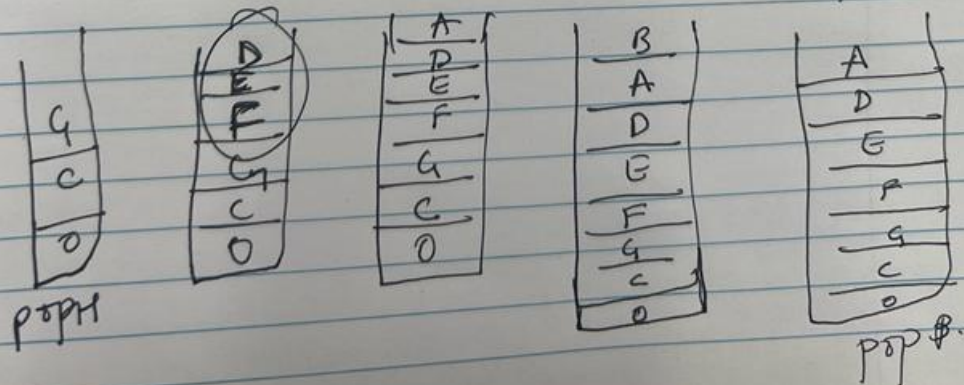 G
C
O
popH
D
E
F
G
C
O
A
D
E
F
G
C
O
B
A
D
E
F
G
C
O
A
D
E
F
G
C
O
pop B.